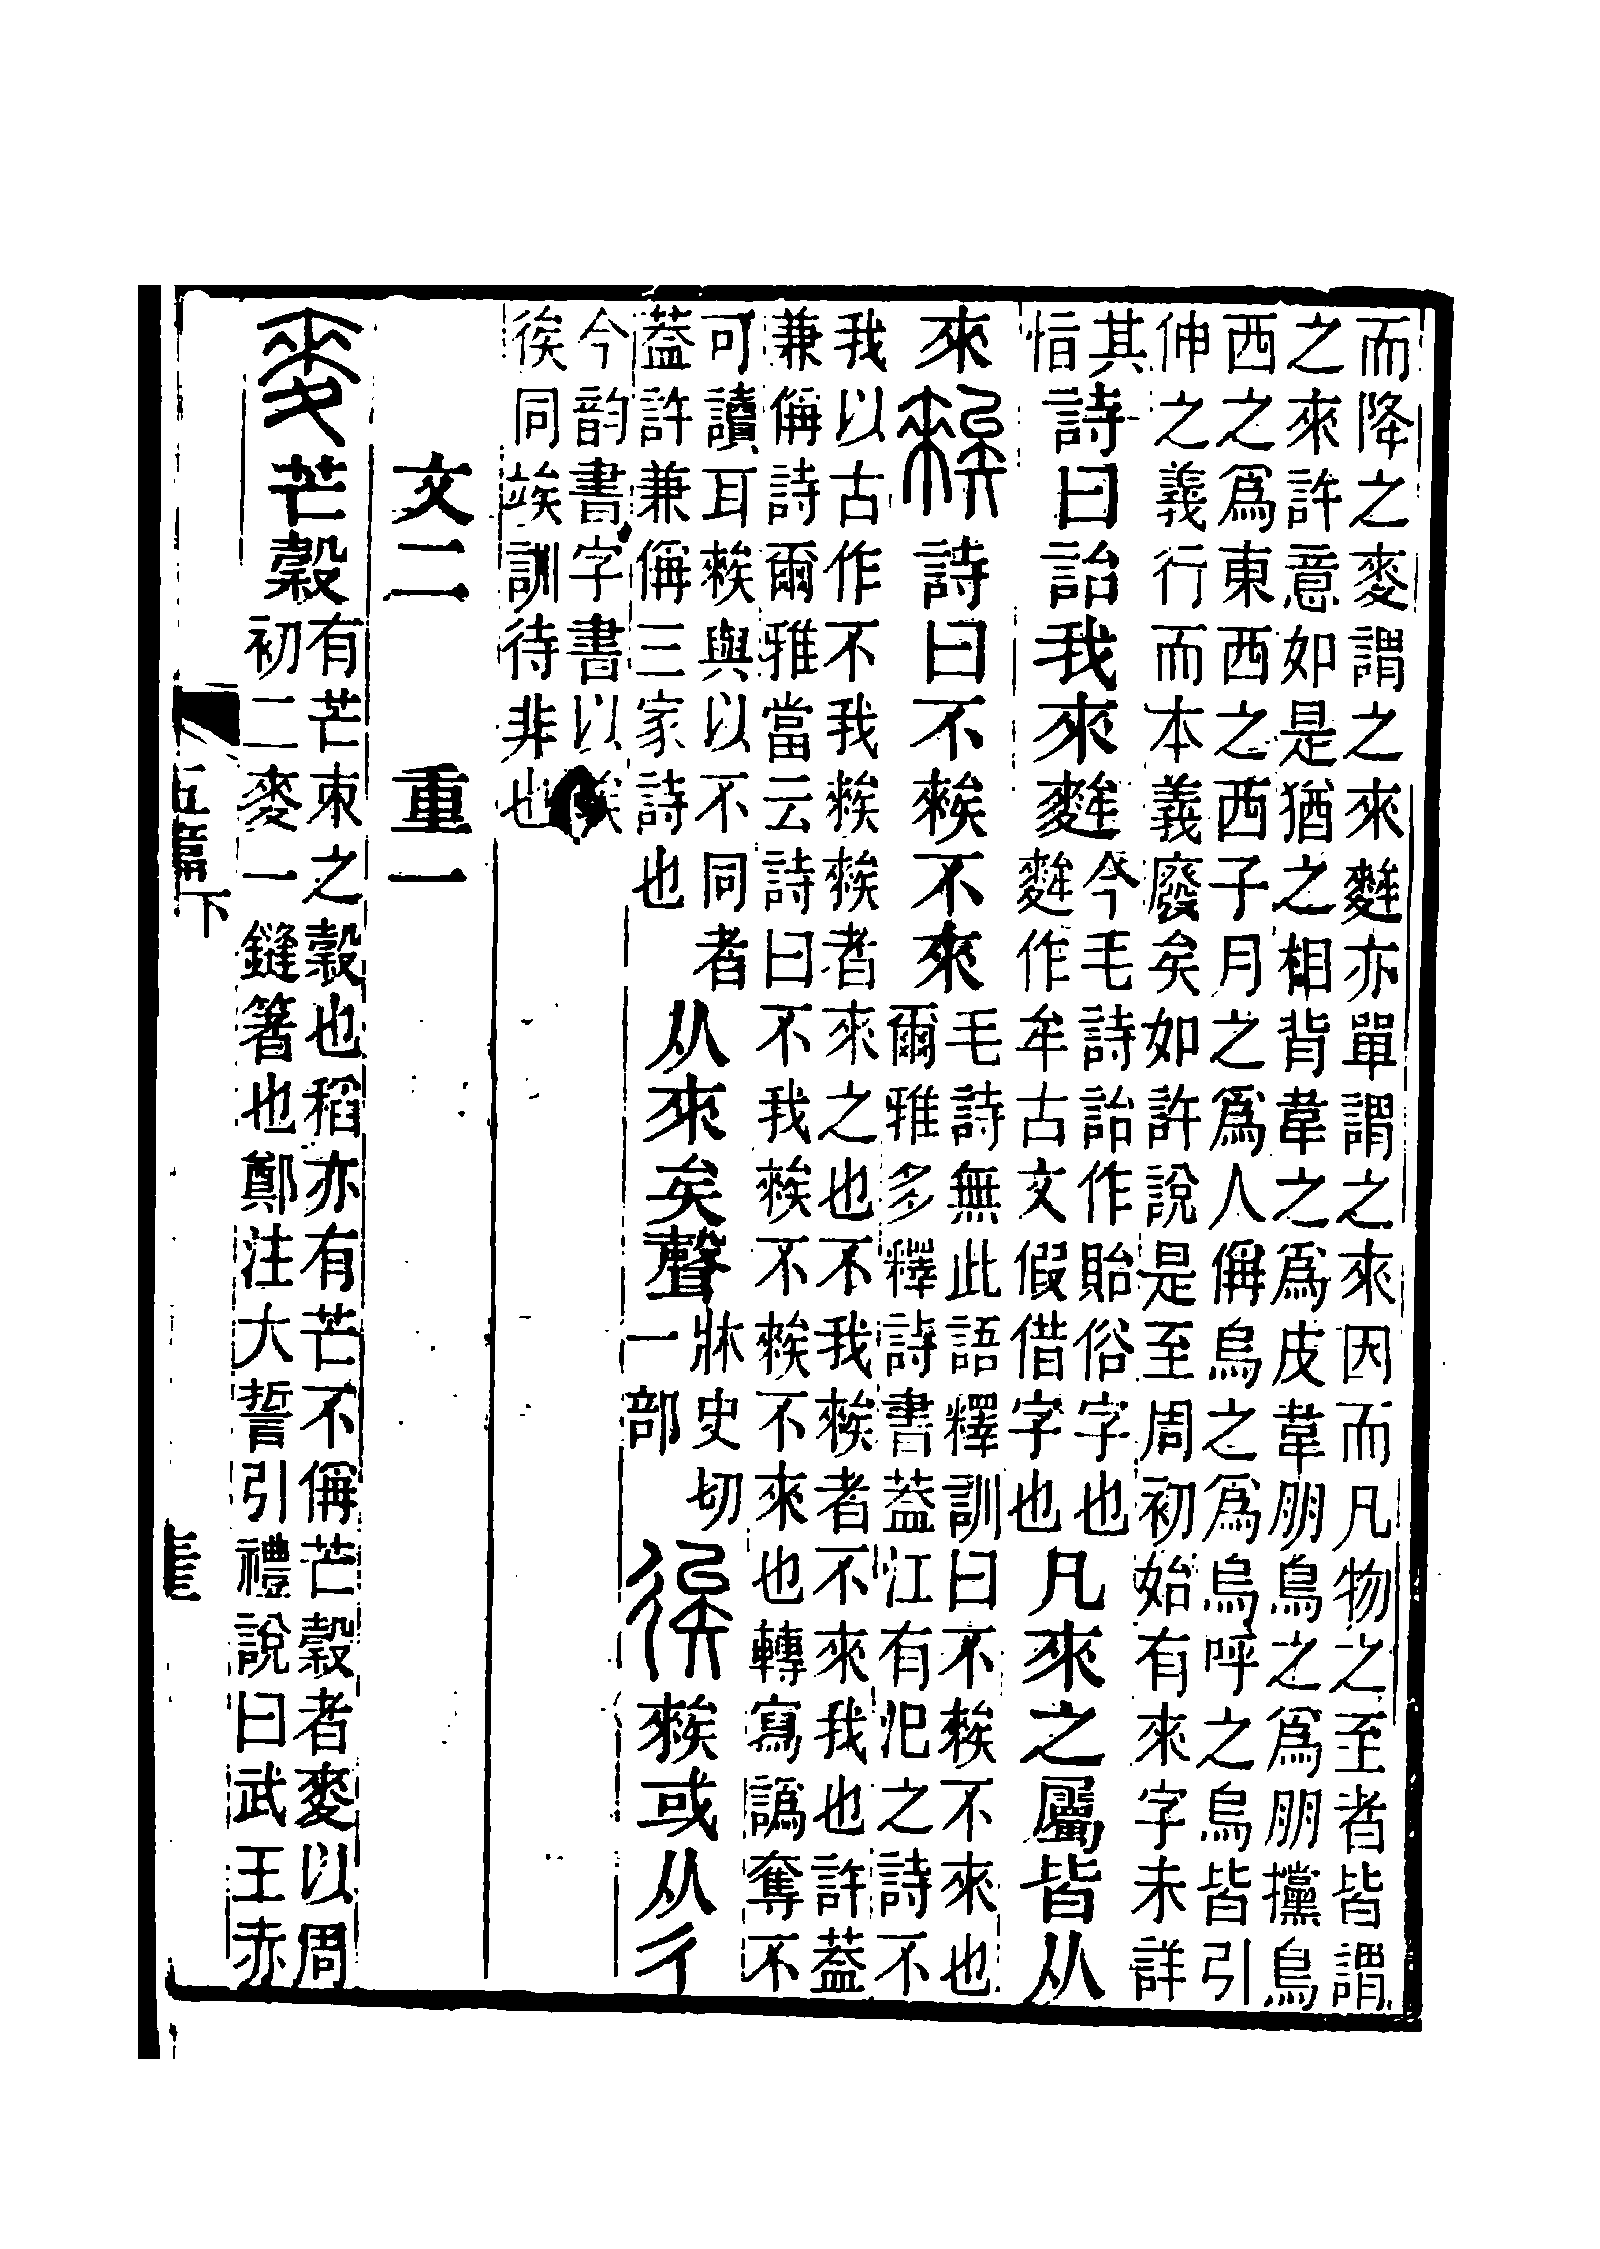 而降之麥謂之來麰亦單謂之來因而凡物之至者皆謂
之來許意如是猶之相背韋之爲皮韋朋鳥之爲朋攩鳥
西之爲東西之西子月之爲人偁烏之爲烏呼之烏皆引
伸之義行而本義廢矣如許說是至周初始有來字未詳
其恉詩曰詒我來麰今毛詩詒作貽俗字也麰作牟古文假借字也凡來之屬皆从
來𥏳詩曰不𥏳不來毛詩無此語釋訓曰不𥏳不來也爾雅多釋詩書葢江有汜之詩不
我以古作不我𥏳𥏳者來之也不我𥏳者不來我也許葢
兼偁詩爾雅當云詩曰不我𥏳不𥏳不來也轉寫譌奪不
可讀耳𥏳與以不同者葢許兼偁三家詩也从來矣聲牀史切一部𢓡𥏳或从彳
今韵書字書以
𢓡同竢訓待非也
文二 重一
麥芒穀有芒朿之穀也稻亦有芒不偁芒穀者麥以周初二麥一鏠箸也鄭注大誓引禮說曰武王赤
五篇下